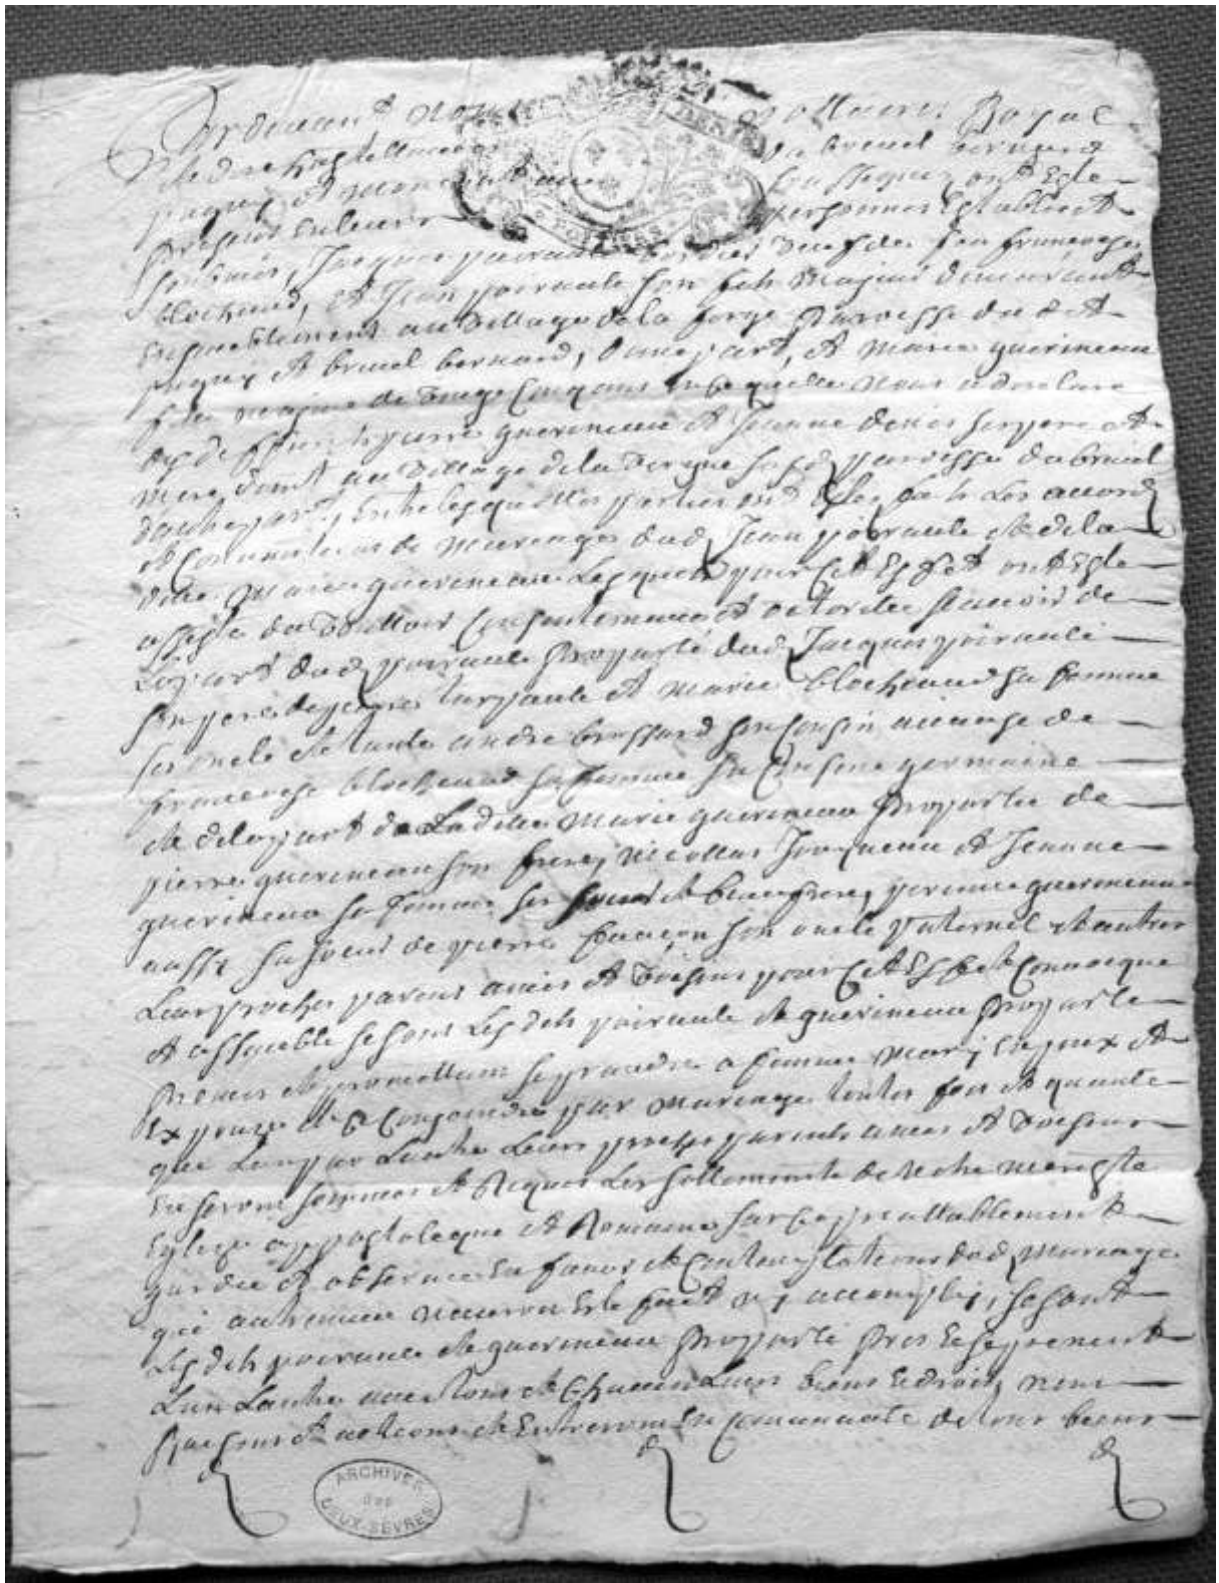 Pardevant Nous Nottaires Royal
Et de
du breuil bernard
pugny et
soussignez ont Esté
presens En leurs personnes Establis et
soubmis, Jacques poirault bordier veuf de feu françoise
blochaud, et Jean poirault son fils majeur demeurant
Ensemblement au Village de la forge Paroisse dudit
pugny et breuil bernard, d'une part, et marie guerineau
fille majeure de vingt cinq ans Ce quelle nous a declaré
de deffunts pierre guerineau et Jeanne denis ses pere et
mere, demt au Village de la paroisse du breuil
d'autre part, Entre lesquelles parties ont Esté faits Les accords
et Conventions de mariage dud Jean poirault et de la
dite marie guerineau Lesquels pour Cet Effet ont Esté
assistés du Voulloir Consentement et autorité sçavoir de
La part dud poirault proparlé dud Jacques poirault
son pere, de et marie blochaud sa femme
ses oncle et tante andré brossard son Cousin a cause de
françoise blochaud sa femme sa Cousine germaine
et de la part de La dite marie guerineau proparlée de
pierre guerineau son frere, Nicollas et Jeanne
guerineau sa femme ses soeur et beau frere, perrine guerineau
aussy sa soeur de pierre son oncle paternel et autres
Leurs proches parens amis et Voisins pour Cet Effet Convoqué
et assemblé se sont Lesdits poirault et guerineau proparlé
promis et promettent se prendre a femme mary Epoux et
Expouze et se Conjoindre par mariage touttes fois et quante
que Lun par Lautre Leurs proches parents amis et Voisins
En seront sommés et Requis Les sollemnités de Notre mere Ste
Eglise appostolique et Romaine sur Ce preallablement
gardée et observée En faveur et Contemplation dud mariage
qui autrement nauroit Esté fait ny accomply, se sont
Lesdits poirault et guerineau proparlé pris Et se prennent
Lun Lautre avec tous et Chacuns Leurs biens Et droits noms
Raisons et actions et Entreront En Communauté de tous biens
ARCHIVES
DES
DEUX-SÈVRES